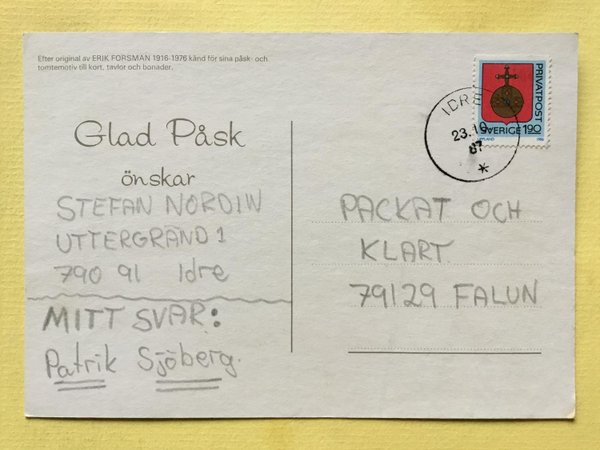 Efter original av ERIK FORSMAN 1916-1976 känd för sina påsk- och
tomtemotiv till kort, tavlor och bonader.
Glad Påsk
önskar
STEFAN NORDIN
UTTERGRÄND 1
790 91 Idre
MITT SVAR:
Patrik Sjöberg.
PRIVATPOST
SVERIGE 190
UPPLAND
IDRE
23.10
87
*
PACKAT OCH
KLART
79129 FALUN